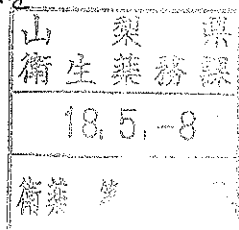 山梨県
衛生薬務課
18.5.-8
衛薬 第